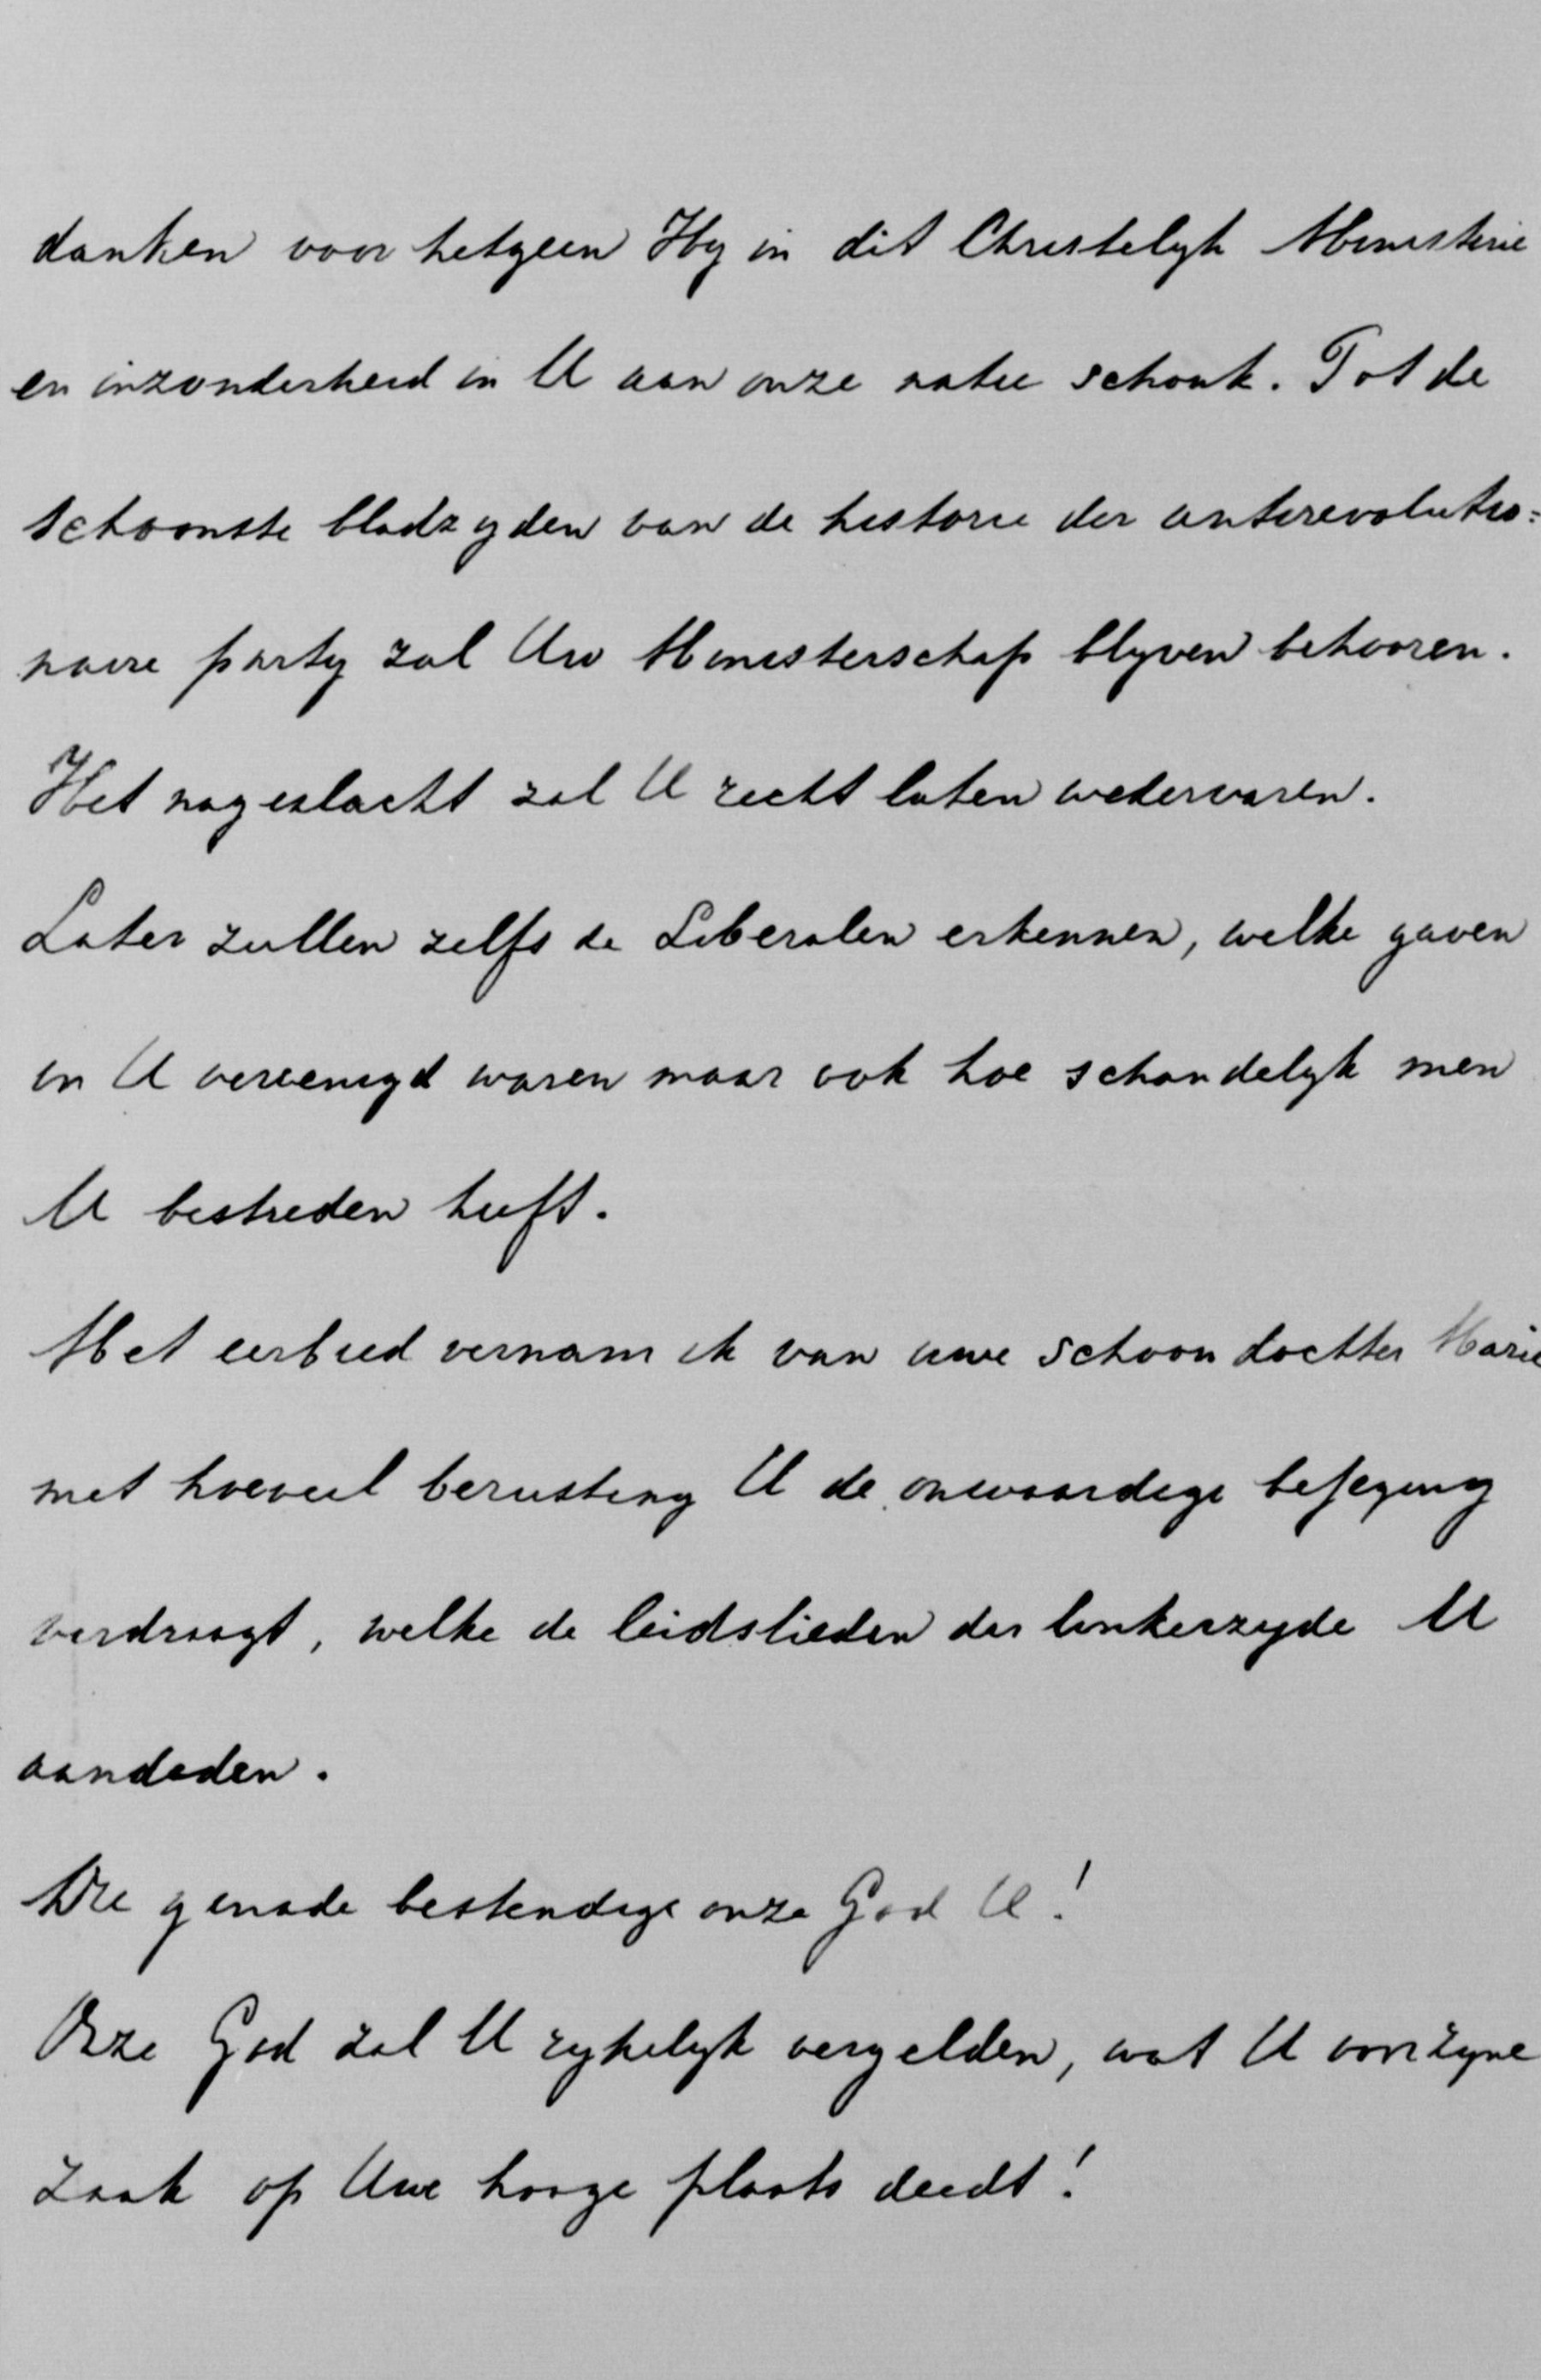 danken voor hetgeen Hy in dit Christelyk Ministerie
en inzonderheid in U aan onze natie schonk. Tot de
schoonste bladzyden van de historie der antirevolutio=
naire party zal Uw Ministerschap blyven behooren.
Het nageslacht zal U recht laten wedervaren.
Later zullen zelfs de Liberalen erkennen, welke gaven
in U vereenigd waren maar ook hoe schandelyk men
U bestreden heeft.
Met eerbied vernam ik van uwe schoondochter Marie
met hoeveel berusting U de onwaardige bejegening
verdraagt, welke de leidslieden der linkerzyde U
aandeden.
Die genade bestendige onze God U!
Onze God zal U rykelyk vergelden, wat U voor zyne
zaak op Uwe hooge plaats deedt!